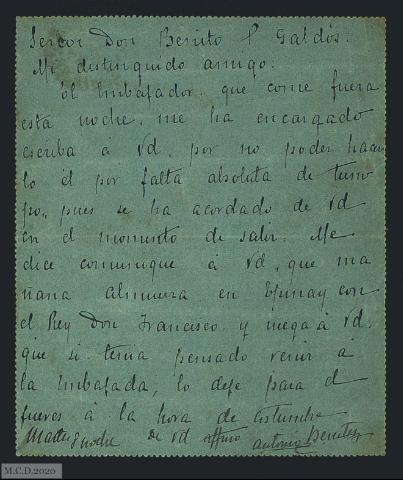 Señor Don Benito P Galdós.
Mi distinguido amigo:
El Embajador, que come fuera
esta noche, me ha encargado
escriba á Vd, por no poder hacer
lo él por falta absoluta de tiem
po, pues se ha acordado de Vd
en el momento de salir. Me
dice comunique á Vd, que ma
ñana almuerza en Epinay con
el Rey Don Francisco y ruega á Vd,
que si tenia pensado venir á
la Embajada, lo deje para el
jueves á la hora de costumbre
Martes noche de Vd affmo Antonio Benitez
M.C.D.2020